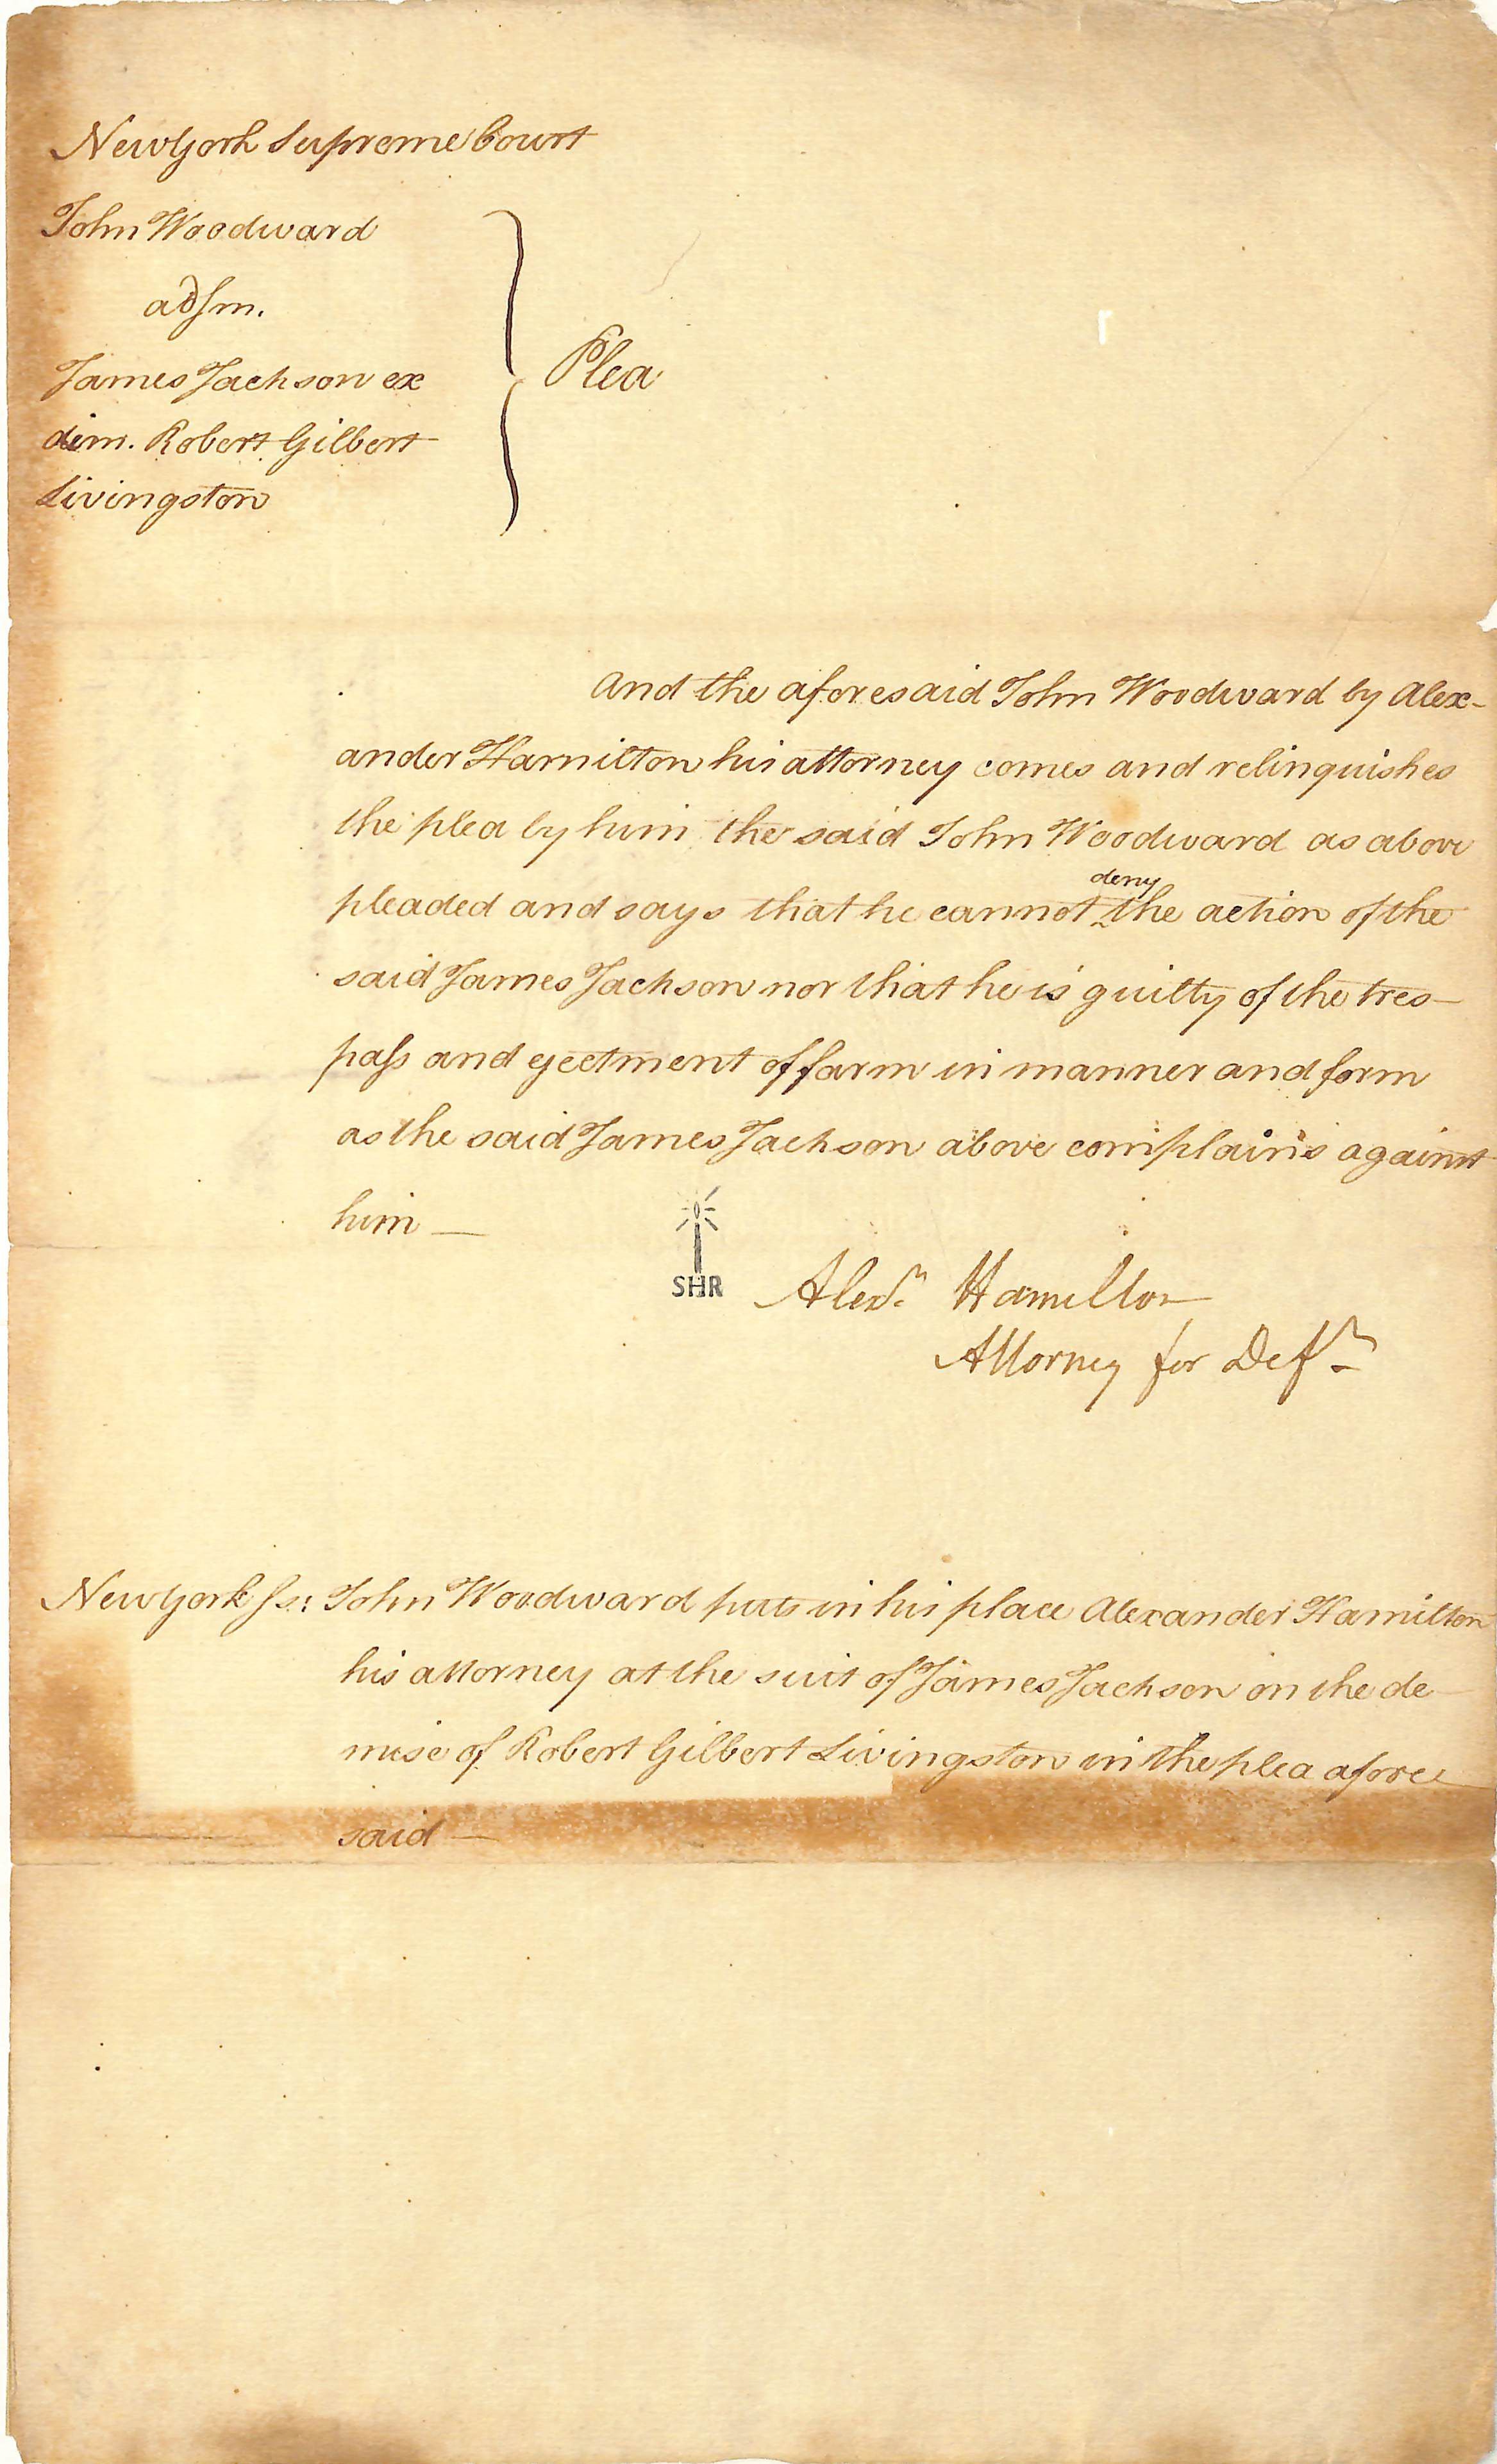 New York Supreme Court
John Woodward
adsm.
James Jackson ex
dim. Robert Gilbert
Livingston
Plea
And the aforesaid John Woodward by Alex-
ander Hamilton his attorney comes and relinquishes
the plea by him the said John Woodward as above
pleaded and says that he cannot ^deny the action of the
said James Jackson nor that he is guilty of the tres-
pass and ejectment of farm in manner and form
as the said James Jackson above complains against
him —
SHR
Alexr. Hamilton
Attorney for Deft
New York ss: John Woodward puts in his place Alexander Hamilton
his attorney at the suit of James Jackson on the de-
mise of Robert Gilbert Livingston in the plea afore-
said —